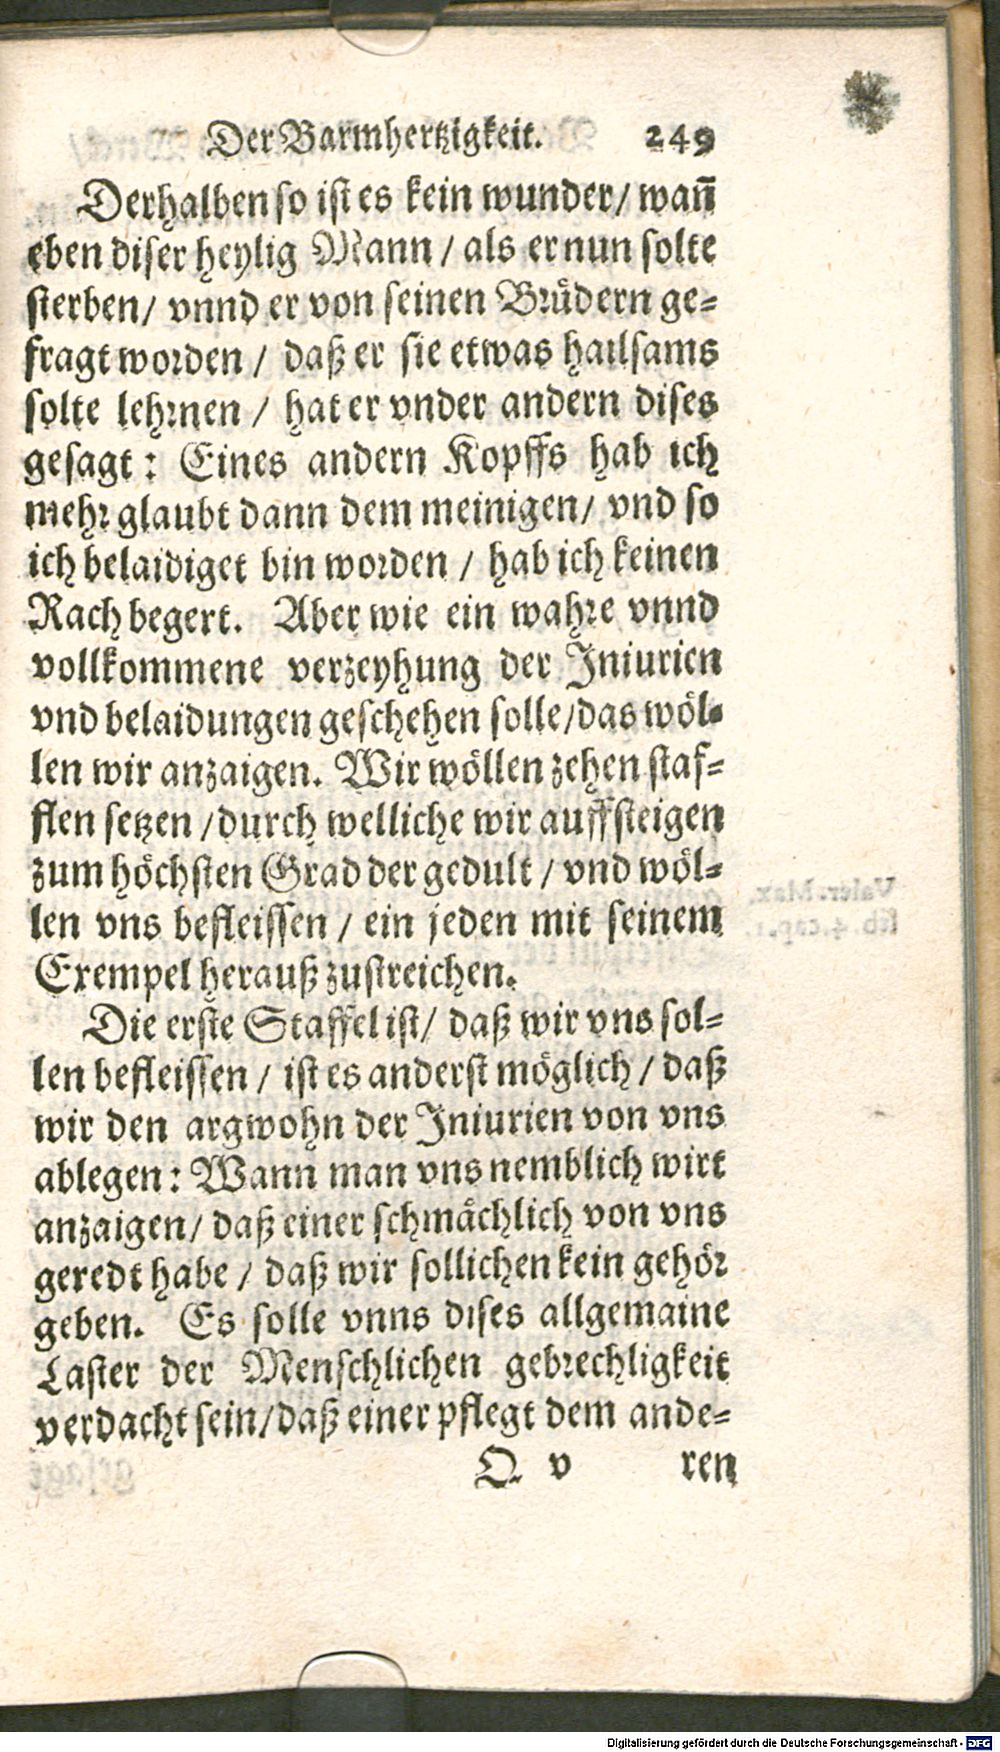 Der Barmhertzigkeit. 249
Derhalben so ist es kein wunder/ wañ
eben diser heylig Mann / als er nun solte
sterben/ vnnd er von seinen Brüdern ge=
fragt worden / daß er sie etwas hailsams
solte lehrnen / hat er vnder andern dises
gesagt: Eines andern Kopffs hab ich
mehr glaubt dann dem meinigen/ vnd so
ich belaidiget bin worden / hab ich keinen
Rach begert. Aber wie ein wahre vnnd
vollkommene verzeyhung der Iniurien
vnd belaidungen geschehen solle/das wöl=
len wir anzaigen. Wir wöllen zehen staf=
flen setzen /durch welliche wir auffsteigen
zum höchsten Grad der gedult / vnd wöl=
len vns befleissen / ein jeden mit seinem
Exempel herauß zustreichen.
Die erste Staffel ist/ daß wir vns sol=
len befleissen / ist es anderst möglich / daß
wir den argwohn der Iniurien von vns
ablegen: Wann man vns nemblich wirt
anzaigen/ daß einer schmächlich von vns
geredt habe / daß wir sollichen kein gehör
geben. Es solle vnns dises allgemaine
Laster der Menschlichen gebrechligkeit
verdacht sein/daß einer pflegt dem ande=
Q v ren
Digitalisierung gefördert durch die Deutsche Forschungsgemeinschaft - DFG